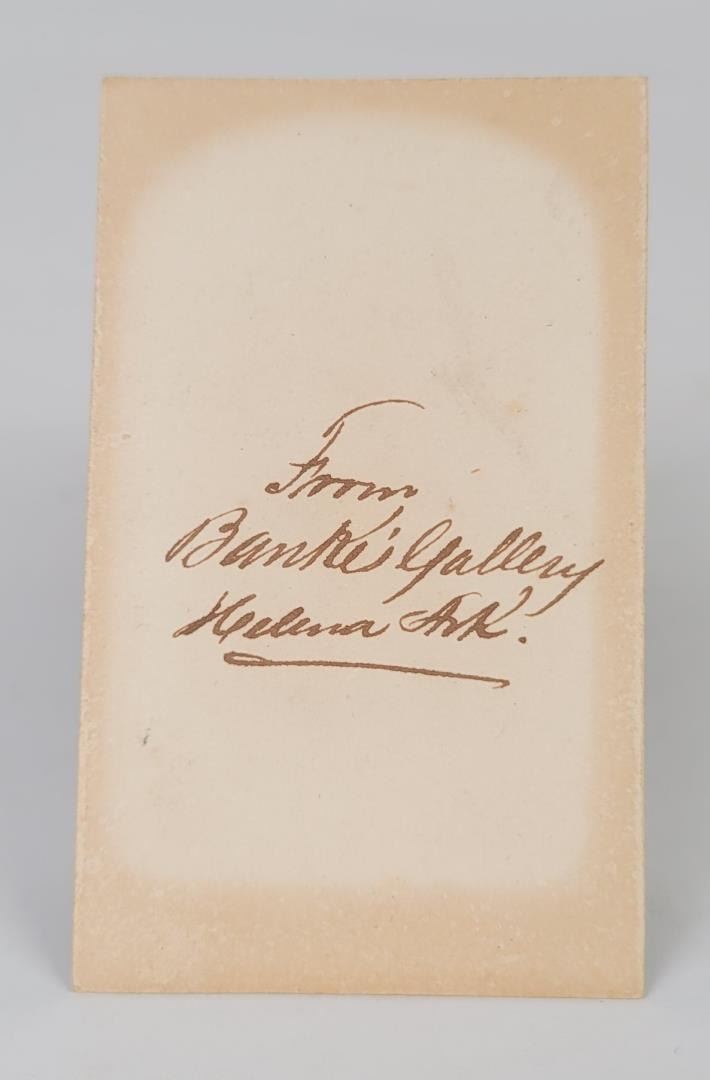 From
Bankes' Gallery
Helena Ark.